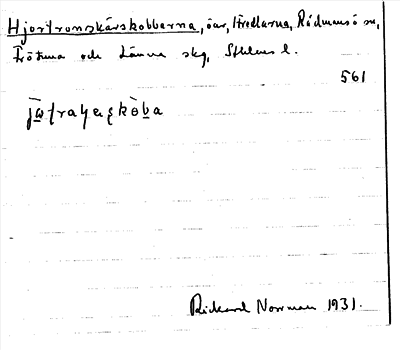 Hjortronskärskobbarna, öar, Hredlarna, Rådmansö sn,
Frötuna och Länna skg, Sthlms l.
561
Rickard Norrman 1931.